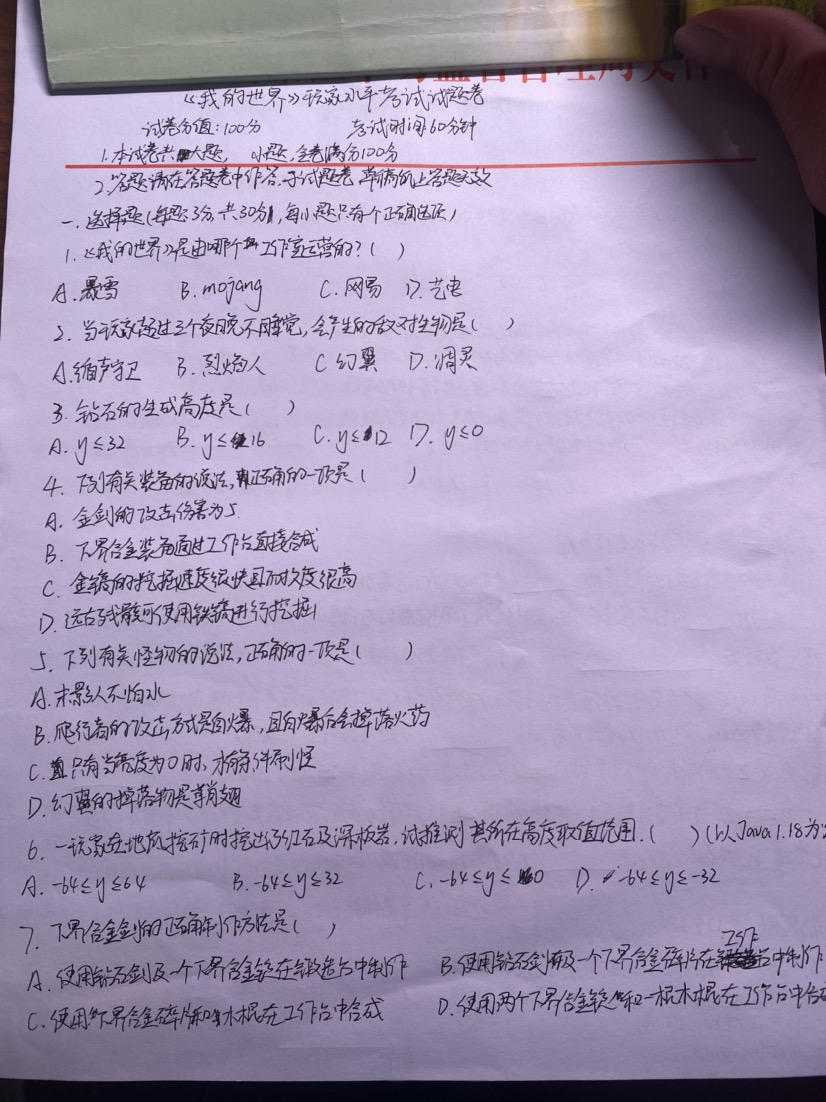 《我的世界》玩家水平考试试题卷
试卷分值:100分 考试时间60分钟
1.本试卷共 大题, 小题,全卷满分100分
2.答题请在答题卷中作答,于试题卷、草稿纸上答题无效
一、选择题(每题3分,共30分,每小题只有个正确选项)
1.《我的世界》是由哪个工作室运营的?( )
A.暴雪 B.mojang C.网易 D.艺电
2.当玩家超过三个夜晚不睡觉,会产生的敌对生物是( )
A.循声守卫 B.烈焰人 C幻翼 D.凋灵
3.钻石的生成高度是( )
A.y≤32 B.y≤16 C.y≤12 D.y≤0
4.下列有关装备的说法,正确的一项是( )
A.金剑的攻击伤害为5.
B.下界合金装备通过工作台直接合成
C.金镐的挖掘速度很快且耐久度很高
D.远古残骸可使用铁镐进行挖掘
5.下列有关怪物的说法,正确的一项是( )
A.末影人不怕水
B.爬行者的攻击方式是自爆,且自爆后会掉落火药
C.只有当亮度为0时,才有条件刷怪
D.幻翼的掉落物是鞘翅
6.一玩家在地底挖矿时挖出了红石及深板岩,试推测其所在高度取值范围.( )(以Java1.18为
A.-64≤y≤64 B.-64≤y≤32 C.-64≤y≤0 D.-64≤y≤-32
7.下界合金剑的正确制作方法是( )
A.使用钻石剑及一个下界合金锭在锻造台中制作 B.使用钻石剑及一个下界合金碎片在工作台中制作
C.使用下界合金碎片和木棍在工作台中合成 D.使用两个下界合金锭和一根木棍在工作台中合成